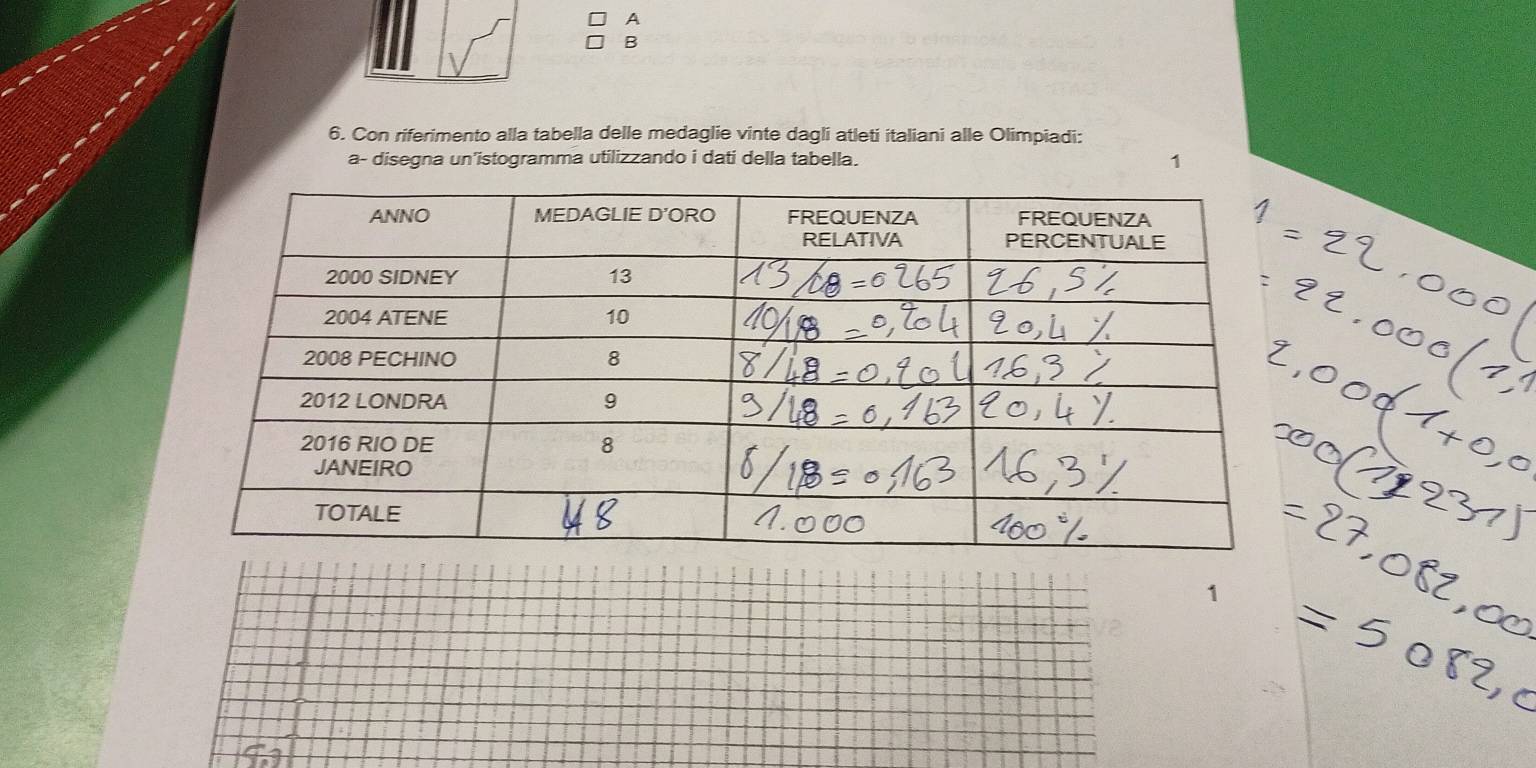 A
B
6. Con riferimento alla tabella delle medaglie vinte dagli atleti italiani alle Olimpiadi:
a- disegna un'istogramma utilizzando i dati della tabella. 1
ANNO MEDAGLIE D'ORO FREQUENZA RELATIVA FREQUENZA PERCENTUALE
2000 SIDNEY 13 13/48=0265 26,5%
2004 ATENE 10 10/48=0,204 20,4%
2008 PECHINO 8 8/48=0,204 16,3%
2012 LONDRA 9 9/48=0,163 20,4%
2016 RIO DE JANEIRO 8 8/48=0,163 16,3%
TOTALE 48 1.000 100%
1
= 22.000(
= 22.000(1,1
2.000(1+0,0
000(1,2231)5
= 27.082,00
= 5082,0